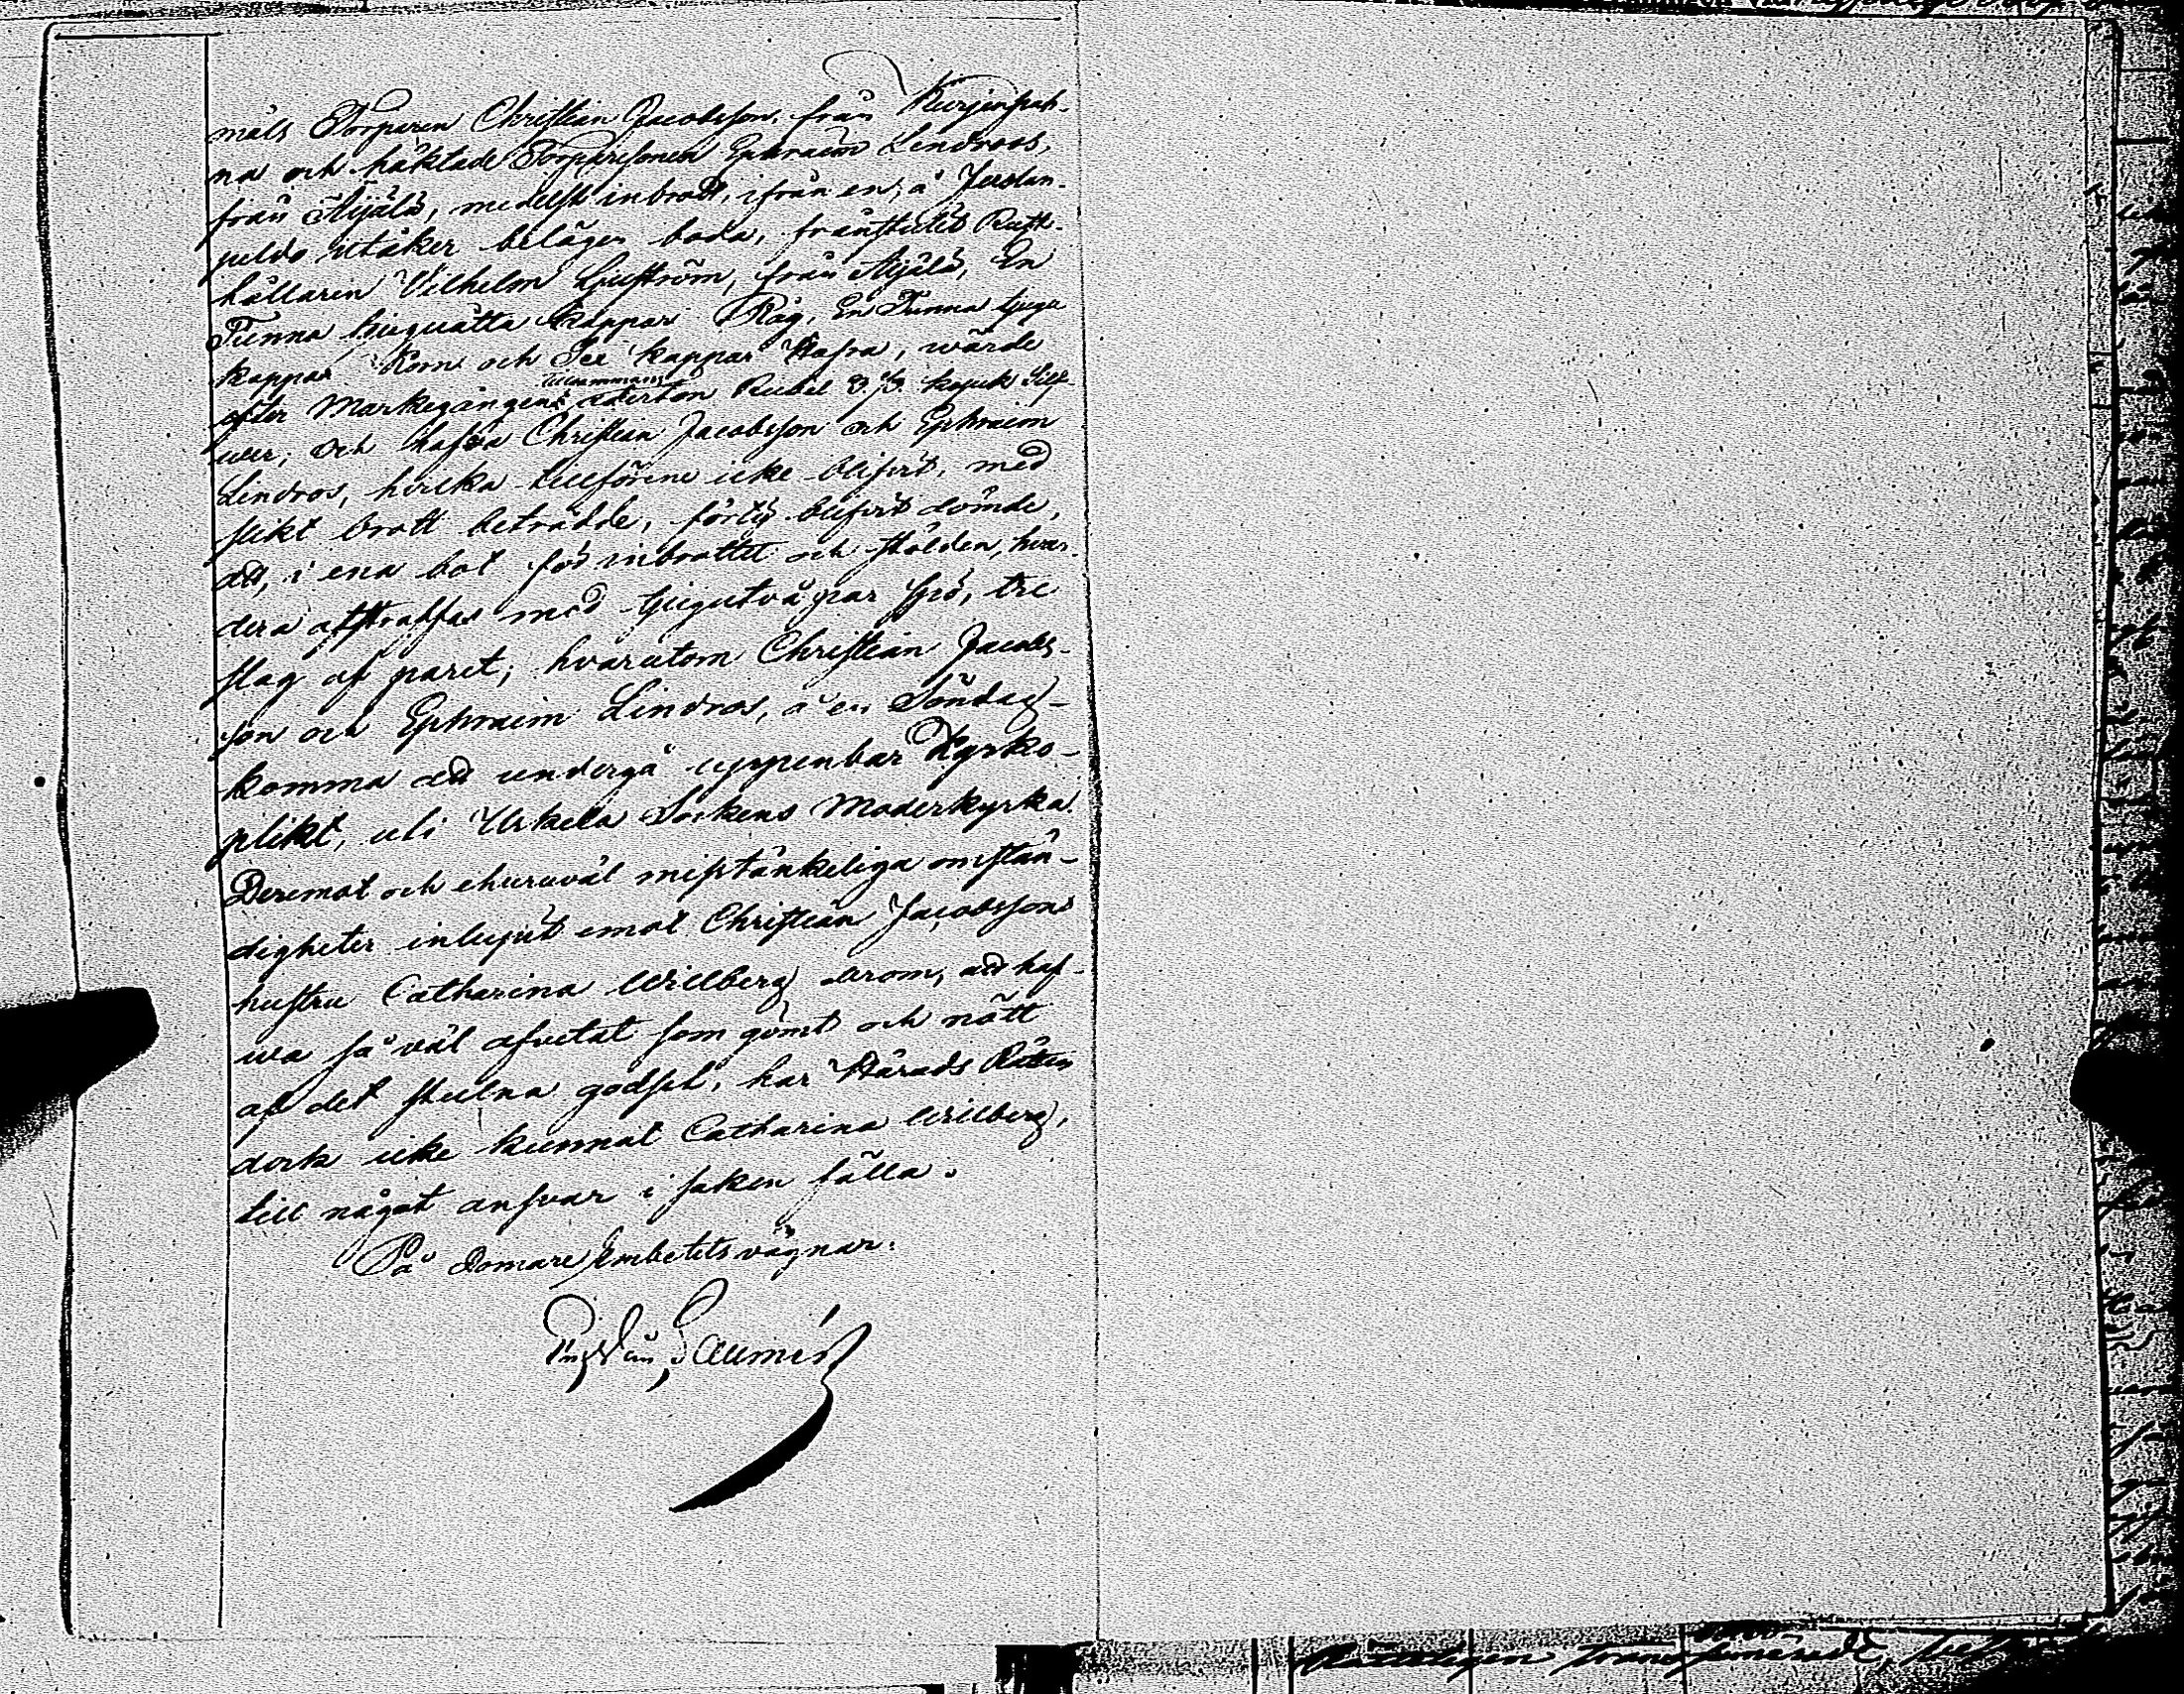 måls Torparen Christian Jacobsson, från Kurjenpah-
na och häktade Torparesonen Ephraim Lindroos,
från Äijälä, medelst inbrott, ifrån en, å
utåker belägen boda, frånstulit Rust-
hållaren Vilhelm Ljuström, från Äijälä, En
Tunna tjuguåtta kappar Råg, En Tunna tjugu
kappar Korn och Sex kappar Hafra, wärde
efter Markegången tillsammans aderton Rubel 3 1/3 kopek Silf-
wer; och hafwa Christian Jacobsson och Ephraim
Lindros, hvilka tillförene icke blifvit, med
slikt brott beträdde, förty blifvit dömde,
att, i ena bot för inbrottet och stölden, hvar-
dera afstraffas med tjugutvå par spö, tre
slag af paret; hvarutom Christian Jacobs-
son och Ephraim Lindros, å en Söndag
komma att undergå uppenbar Kyrko-
plikt, uti Urkela Sockens Moderkyrka.
Deremot och ehuruväl misstänkeliga omstän-
digheter inlupit emot Christian Jacobssons
hustru Catharina Willberg derom, att haf-
wa så väl afvetat som gömt och nått
af det stulna godset, har Härads Rätten
dock icke kunnat Catharina Willberg,
till något ansvar i saken fälla.
På Domare Embetets vägnar: